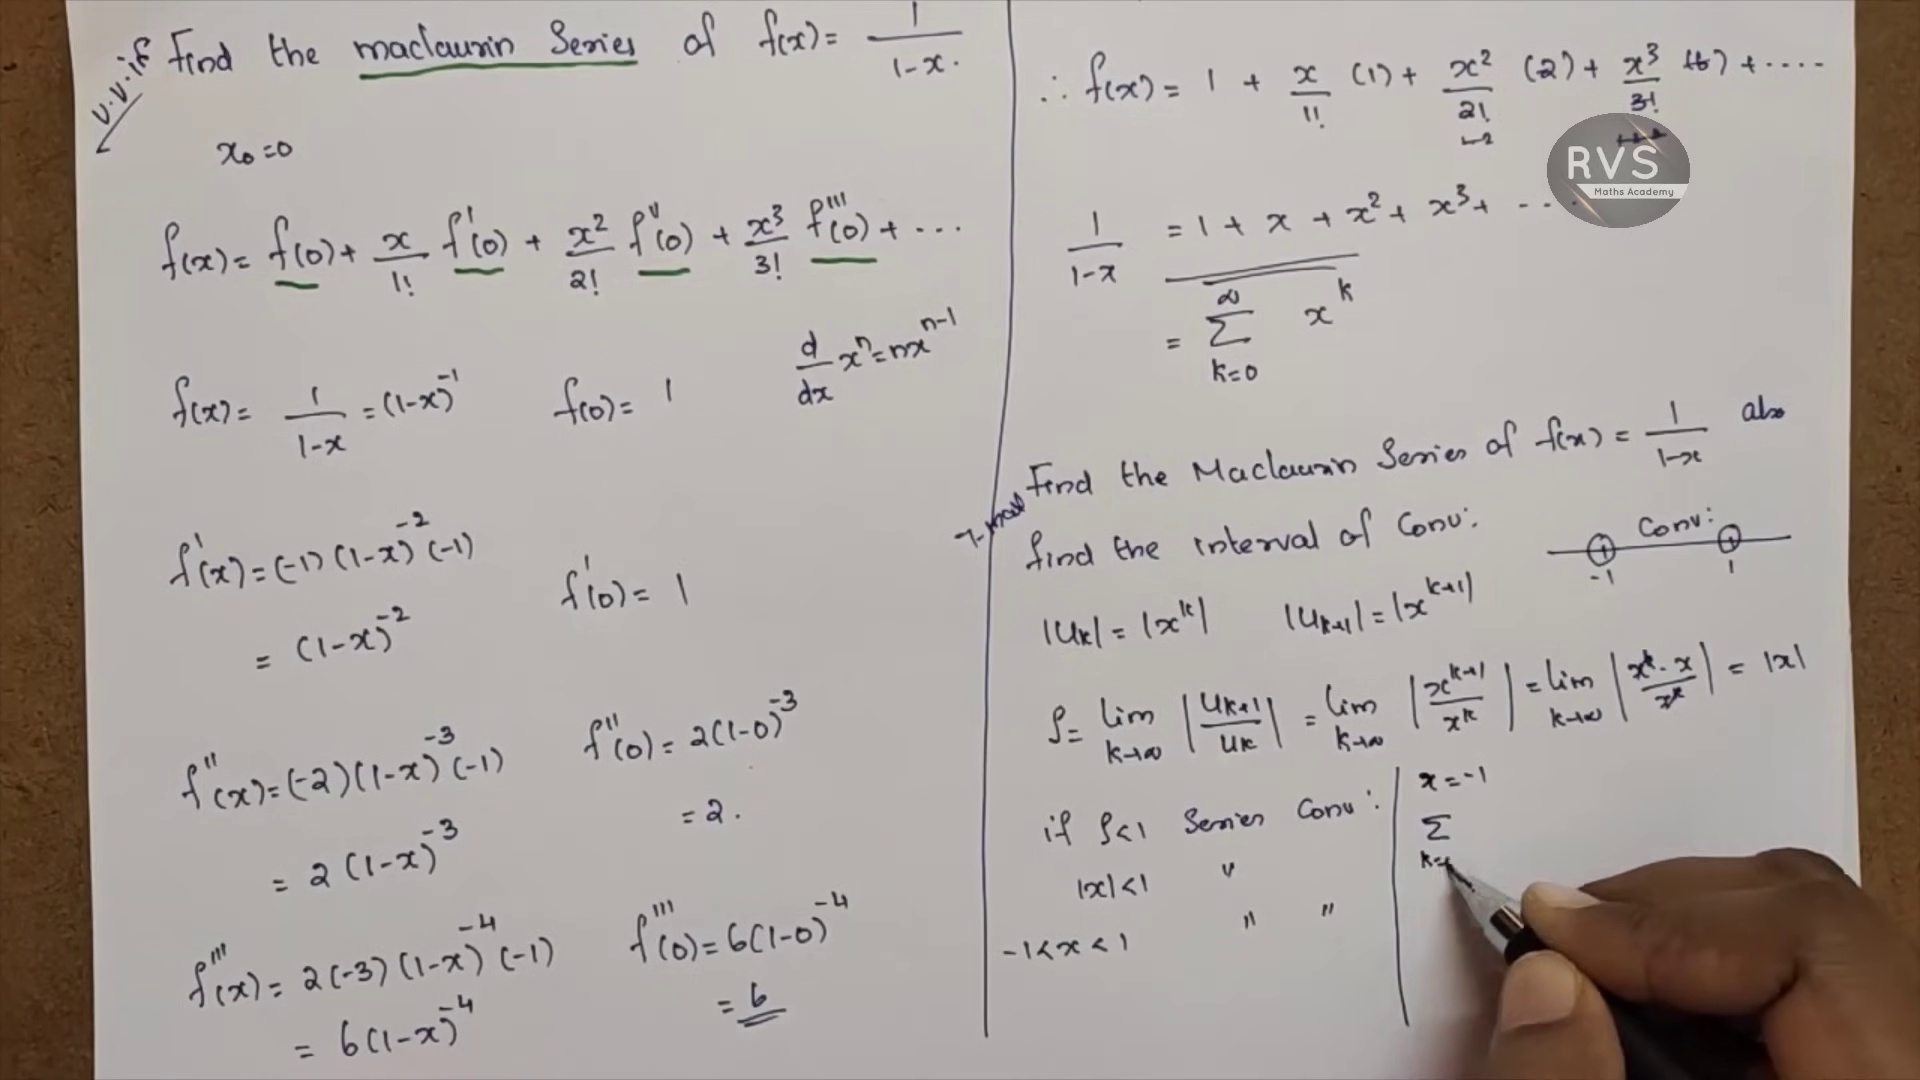 V.V.if
Find the maclaurin Series of f(x) = 1/(1-x).
x₀ = 0
f(x) = f(0) + x/1! f'(0) + x²/2! f''(0) + x³/3! f'''(0) + ...
d/dx xⁿ = nxⁿ⁻¹
f(x) = 1/(1-x) = (1-x)⁻¹ f(0) = 1
f'(x) = (-1)(1-x)⁻²(-1) f'(0) = 1
= (1-x)⁻²
f''(x) = (-2)(1-x)⁻³(-1) f''(0) = 2(1-0)⁻³
= 2(1-x)⁻³ = 2.
f'''(x) = 2(-3)(1-x)⁻⁴(-1) f'''(0) = 6(1-0)⁻⁴
= 6(1-x)⁻⁴ = 6
∴ f(x) = 1 + x/1! (1) + x²/2! (2) + x³/3! (6) + ....
RVS
Maths Academy
1/(1-x) = 1 + x + x² + x³ + ....
= ∞ Σ k=0 xᵏ
Find the Maclaurin Series of f(x) = 1/(1-x) also
find the interval of Conv:
Conv:
-1 1
|Uk| = |xᵏ| |Uk+1| = |xᵏ⁺¹|
ρ = lim k→∞ |Uk+1/Uk| = lim k→∞ |xᵏ⁺¹/xᵏ| = lim k→∞ |xᵏ·x/xᵏ| = |x|
if ρ<1 Series Conv:
|x|<1 "
-1<x<1 " "
x = -1
Σ
k=